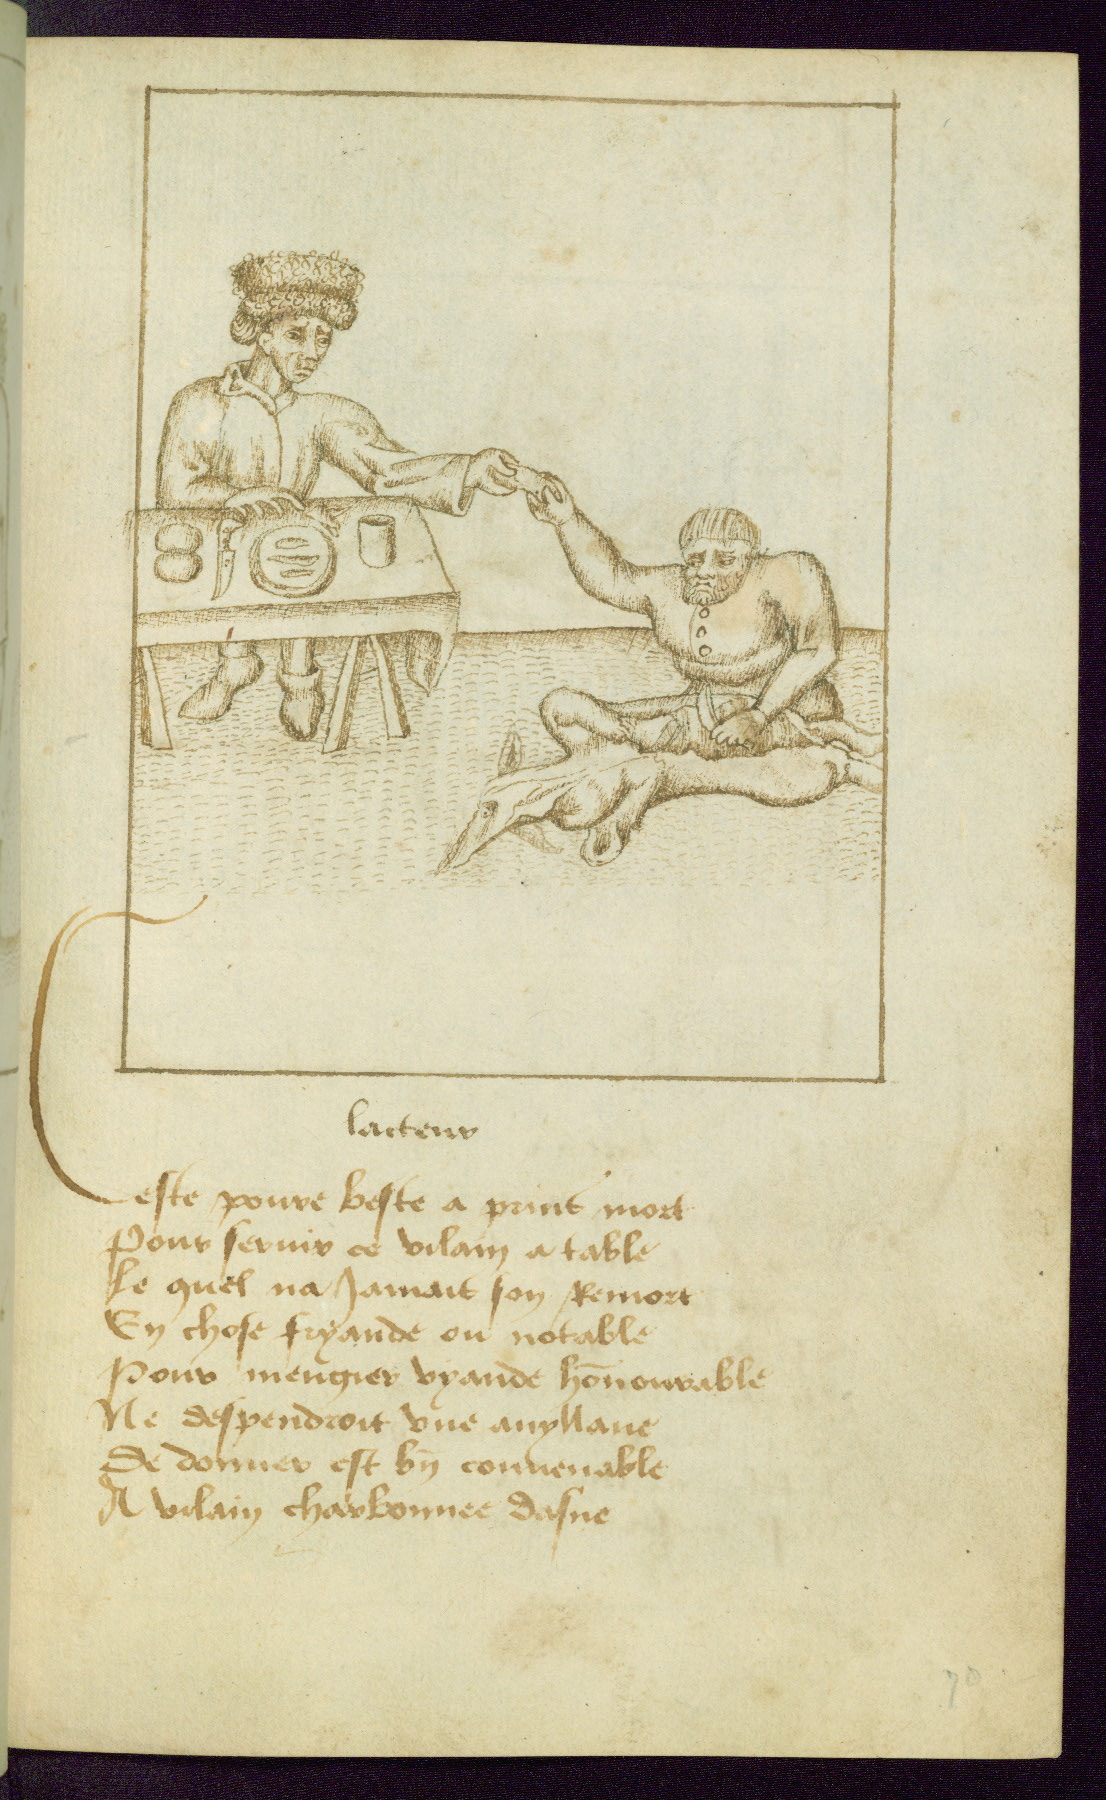 lacteur
Ceste povre beste a prins mort
Pour servir ce vilain a table
Le quel na Jamais son Remort
En chose fryande ou notable
Pour mengier vyande hōnourable
Ne despendroit vne
De donner est bn̄ conuenable
A vilain charbonnee dasne
70